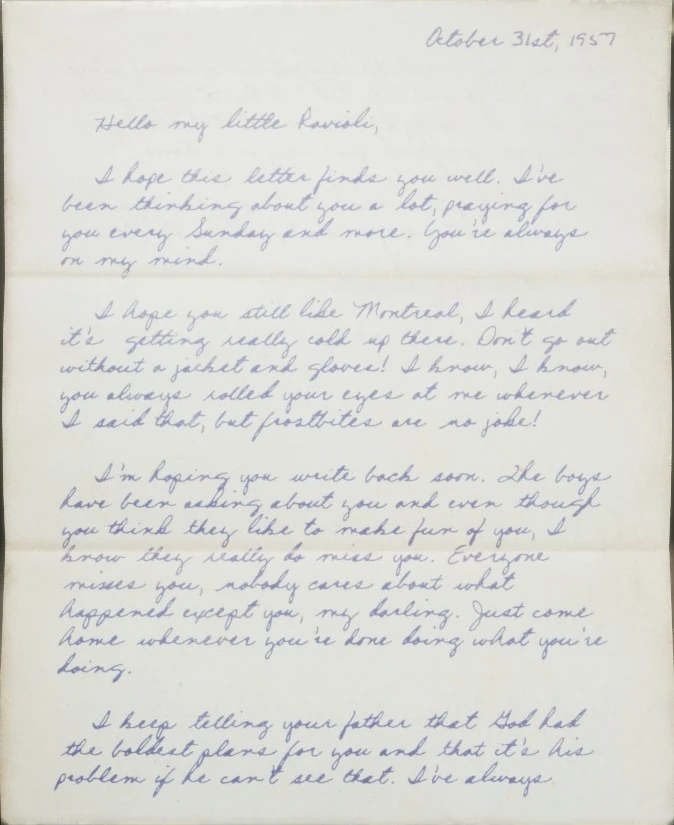 October 31st, 1957
Hello my little Ravioli,
I hope this letter finds you well. I've
been thinking about you a lot, praying for
you every Sunday and more. You're always
on my mind.
I hope you still like Montreal, I heard
it's getting really cold up there. Don't go out
without a jacket and gloves! I know, I know,
you always rolled your eyes at me whenever
I said that, but frostbites are no joke!
I'm hoping you write back soon. The boys
have been asking about you and even though
you think they like to make fun of you, I
know they really do miss you. Everyone
misses you, nobody cares about what
happened except you, my darling. Just come
home whenever you're done doing what you're
doing.
I keep telling your father that God had
the boldest plans for you and that it's his
problem if he can't see that. I've always